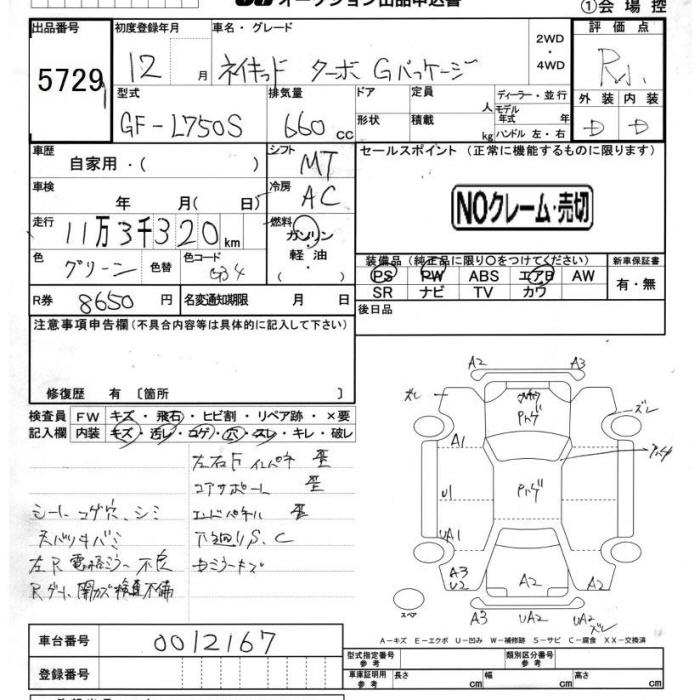 オークション出品申込書
①会場控
出品番号 初度登録年月 車名・グレード 2WD・4WD 評価点
5729 12月 ネイキッド ターボ Gパッケージ R
外装 内装
D D
型式 排気量 ドア 定員 人 ディーラー・並行
GF-L750S 660cc 形状 積載 kg モデル年式 年
ハンドル 左・右
車歴 自家用・( ) シフト MT セールスポイント (正常に機能するものに限ります)
車検 年 月( 日) 冷房 AC
NOクレーム・売切
走行 11万3千320km 燃料 ガソリン・軽油・( )
色 グリーン 色替 色コード G34
装備品 (純正品に限り○をつけてください) 新車保証書
PS PW ABS エアB AW 有・無
SR ナビ TV カワ
R券 8650円 名変通知期限 月 日
後日品
注意事項申告欄 (不具合内容等は具体的に記入して下さい)
修復歴 有 〔箇所 〕
検査員 FW キズ・飛石・ヒビ割・リペア跡・×要
記入欄 内装 キズ・汚レ・コゲ・穴・スレ・キレ・破レ
左右Fインパネ 歪
コアサポート 歪
シート コゲ穴、シミ エンドパネル 歪
下廻りS、C
左R電格ミラー不良
A2 A3
ズレ ズレ
A1
U1
UA1
A3
U2
A2 A2
A3 UA2 UA2
ズレ
スペア
A-キズ E-エクボ U-凹み W-補修跡 S-サビ C-腐食 XX-交換済
車台番号 0012167
登録番号
型式指定番号 参考 類別区分番号 参考
車庫証明用 参考 長さ cm 幅 cm 高さ cm